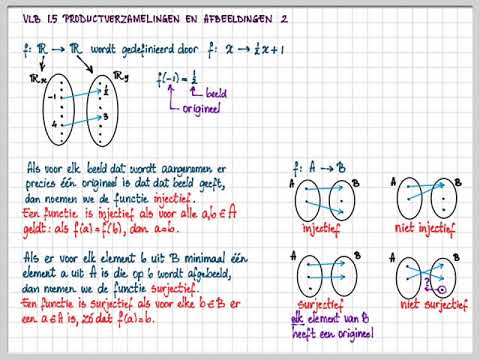 VLB 1.5 PRODUCTVERZAMELINGEN EN AFBEELDINGEN 2
f: ℝ → ℝ wordt gedefinieerd door f: x → ½x+1
ℝx ℝy
f(-1) = ½
-1 ½
beeld
origineel
4 3
Als voor elk beeld dat wordt aangenomen er
precies één origineel is dat dat beeld geeft,
dan noemen we de functie injectief.
Een functie is injectief als voor alle a,b ∈ A
geldt: als f(a)=f(b), dan a=b.
f: A → B
A B A B
injectief niet injectief
Als er voor elk element b uit B minimaal één
element a uit A is die op b wordt afgebeeld,
dan noemen we de functie surjectief.
Een functie is surjectief als voor elke b ∈ B er
een a ∈ A is, zó dat f(a)=b.
A B A B
?
surjectief niet surjectief
elk element van B
heeft een origineel